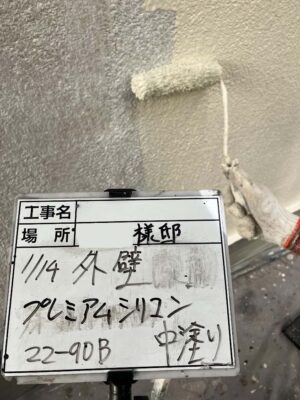 工事名
場所 様邸
1/14 外壁
プレミアムシリコン
22-90B 中塗り